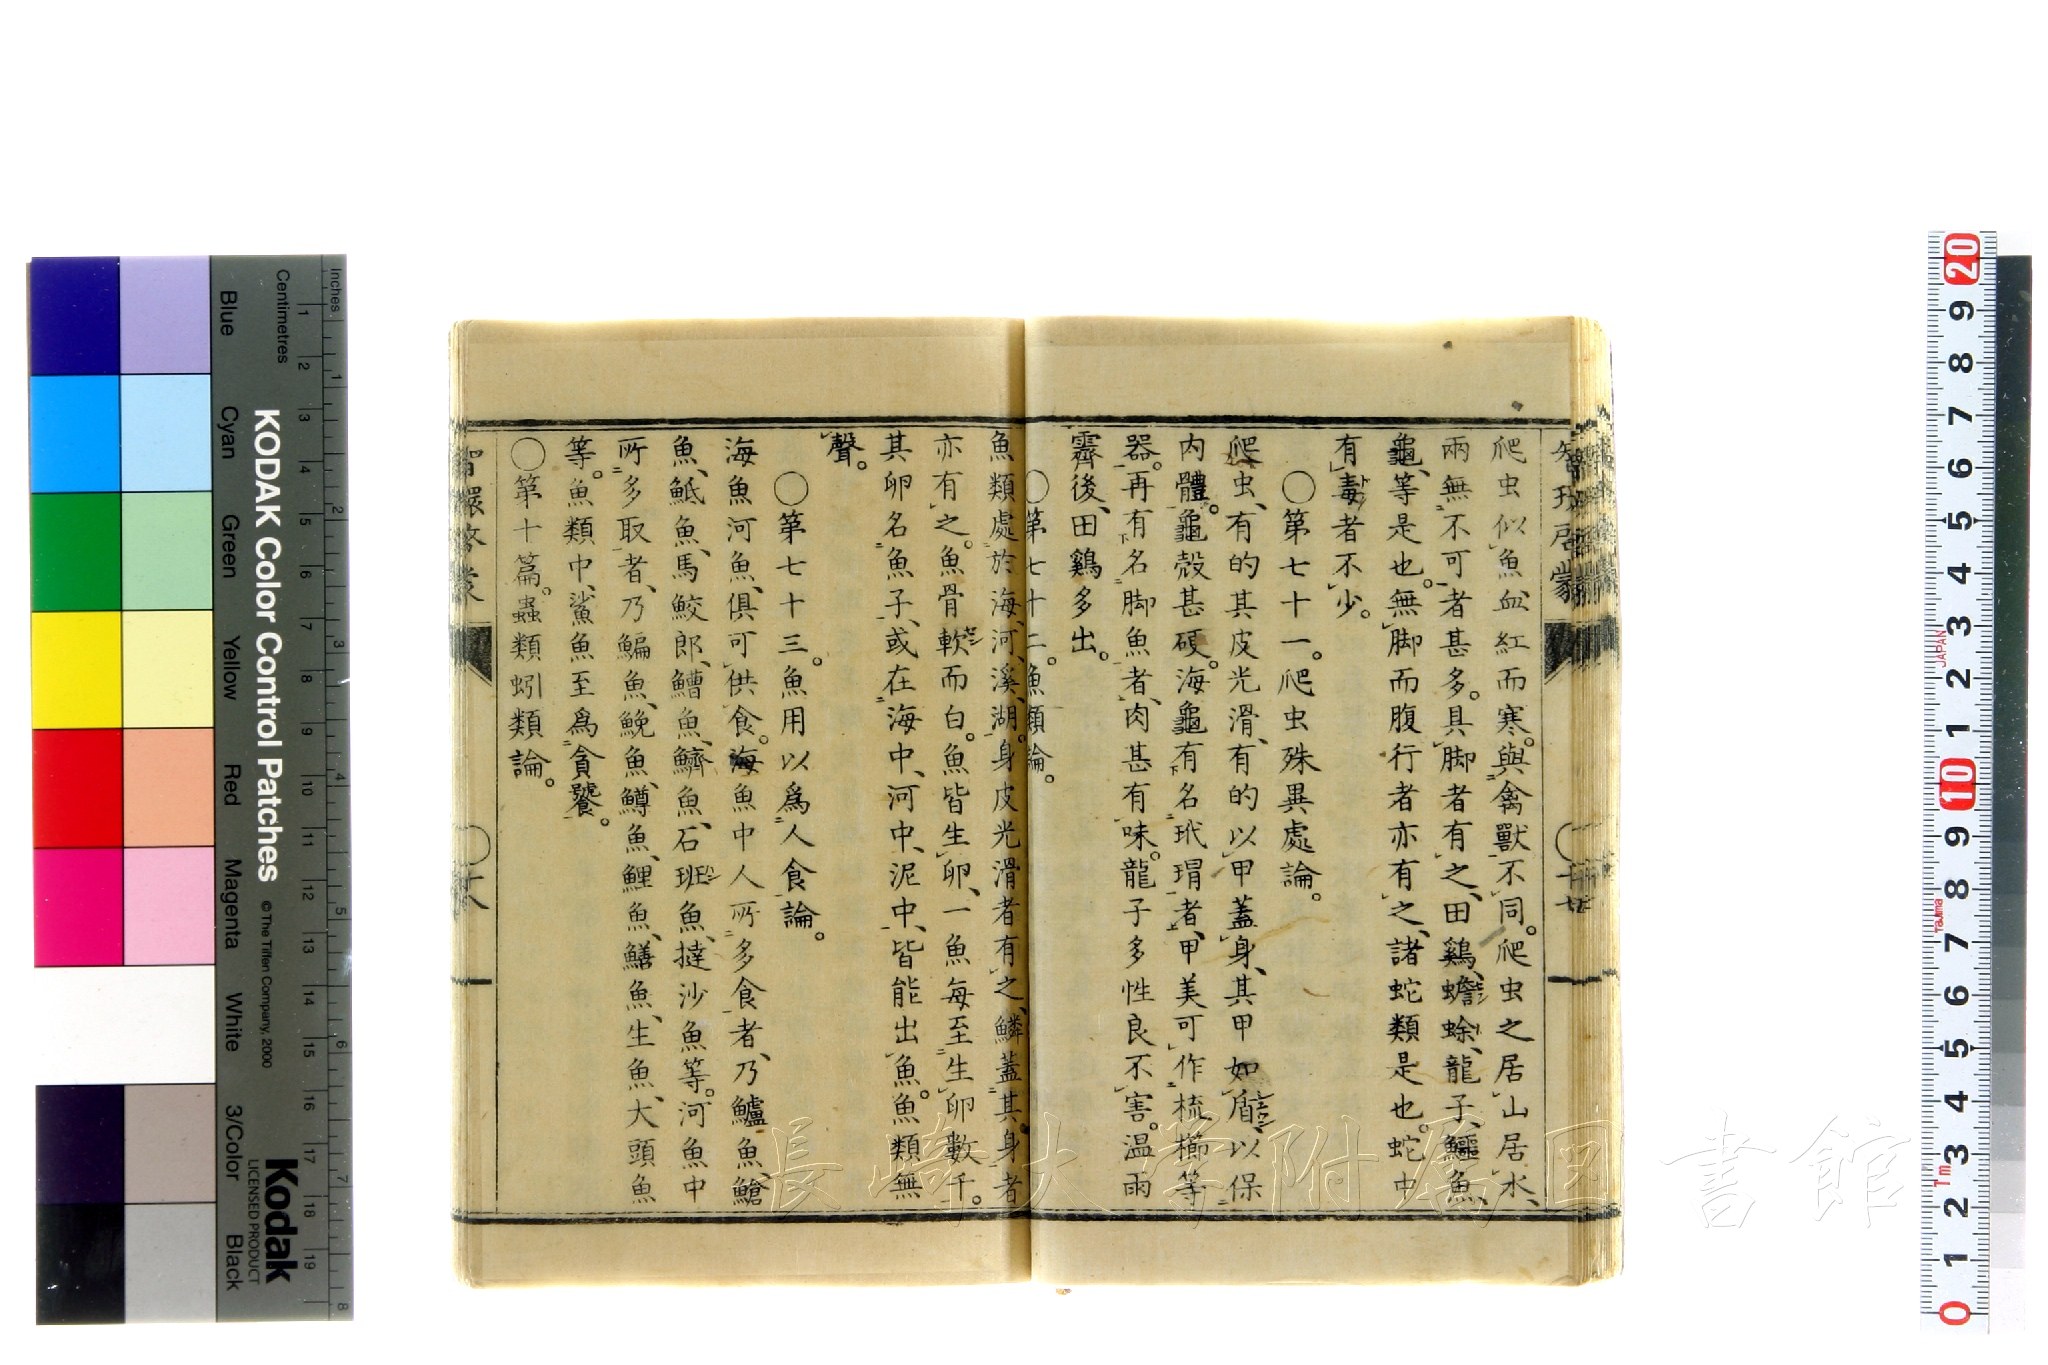 爬虫似魚血、紅而寒。與禽獸不同。爬虫之居山居水、
兩無不可者甚多。具脚者有之、田鷄、蟾蜍、龍子、鱷魚、
龜、等是也。無脚而腹行者亦有之、諸蛇類是也。蛇中
有毒者不少。
○第七十一。爬虫殊異處論。
爬虫、有的其皮光滑、有的以甲蓋身、其甲如盾、以保
内體。龜殼甚硬。海龜有名玳瑁者、甲美可作梳櫛等
器。再有名脚魚者、肉甚有味。龍子多性良不害。温雨
霽後、田鷄多出。
○第七十二。魚類論。
魚類處於海、河、溪、湖。身皮光滑者有之、鱗蓋其身者
亦有之。魚骨軟而白。魚皆生卵、一魚每至生卵數千。
其卵名魚子、或在海中、河中、泥中、皆能出魚。魚類無
聲。
○第七十三。魚用以爲人食論。
海魚河魚、俱可供食。海魚中人所多食者、乃鱸魚、鯧
魚、魤魚、馬鮫郎、鰽魚、鱭魚、石班魚、撻沙魚等。河魚中
所多取者、乃鯿魚、鮸魚、鱒魚、鯉魚、鱔魚、生魚、大頭魚
等。魚類中、鯊魚至爲貪饕。
○第十篇。蟲類蚓類論。
智環啓蒙
KODAK Color Control Patches
© The Tiffen Company, 2000
Kodak
LICENSED PRODUCT
Inches
Centimetres
Blue
Cyan
Green
Yellow
Red
Magenta
White
3/Color
Black
1 2 3 4 5 6 7 8 9 10 11 12 13 14 15 16 17 18 19
1 2 3 4 5 6 7 8
20 9 8 7 6 5 4 3 2 1 10 9 8 7 6 5 4 3 2 1 0
JAPAN
Tajima
長崎大学附属図書館